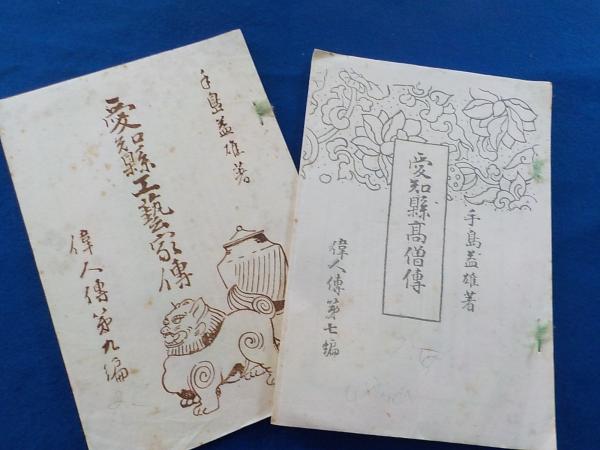 手島益雄著
愛知縣工藝家傳
偉人傳第九編
手島益雄著
愛知縣高僧傳
偉人傳第七編